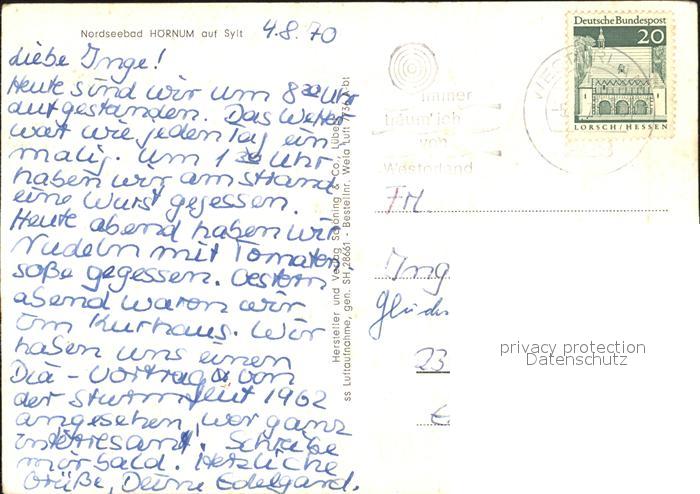 Nordseebad HÖRNUM auf Sylt
4.8.70
Liebe Inge!
Heute sind wir um 8 30 Uhr
aufgestanden. Das Wetter
war wie jeden Tag ein
malig. Um 1 30 Uhr
haben wir am Strand
eine Wurst gegessen.
Heute abend haben wir
Nudeln mit Tomaten
soße gegessen. Gestern
abend waren wir
im Kurhaus. Wir
haben uns einen
Dia-Vortrag von
der Sturmflut 1962
angesehen, war ganz
interresant. Schreibe
mir bald. Herzliche
Grüße, Deine Edelgard.
Hersteller und Verlag Schöning & Co., Lübeck
ss Luftaufnahme, gen. SH 28661 - Bestellnr. Wela Luft
Deutsche Bundespost
20
LORSCH/HESSEN
immer
träum ich
von
Westerland
Frl.
Ing
23
privacy protection
Datenschutz